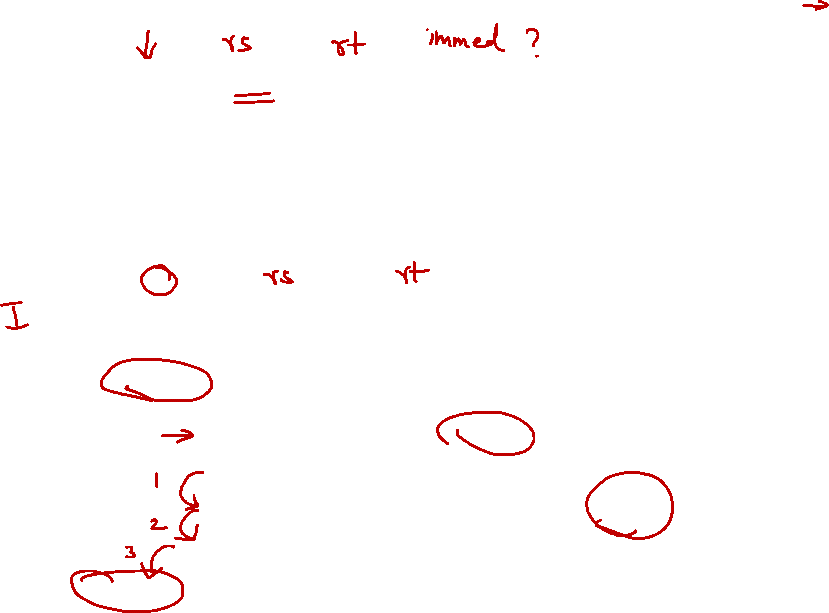 rs rt immed ?
rs rt
I
1
2
3